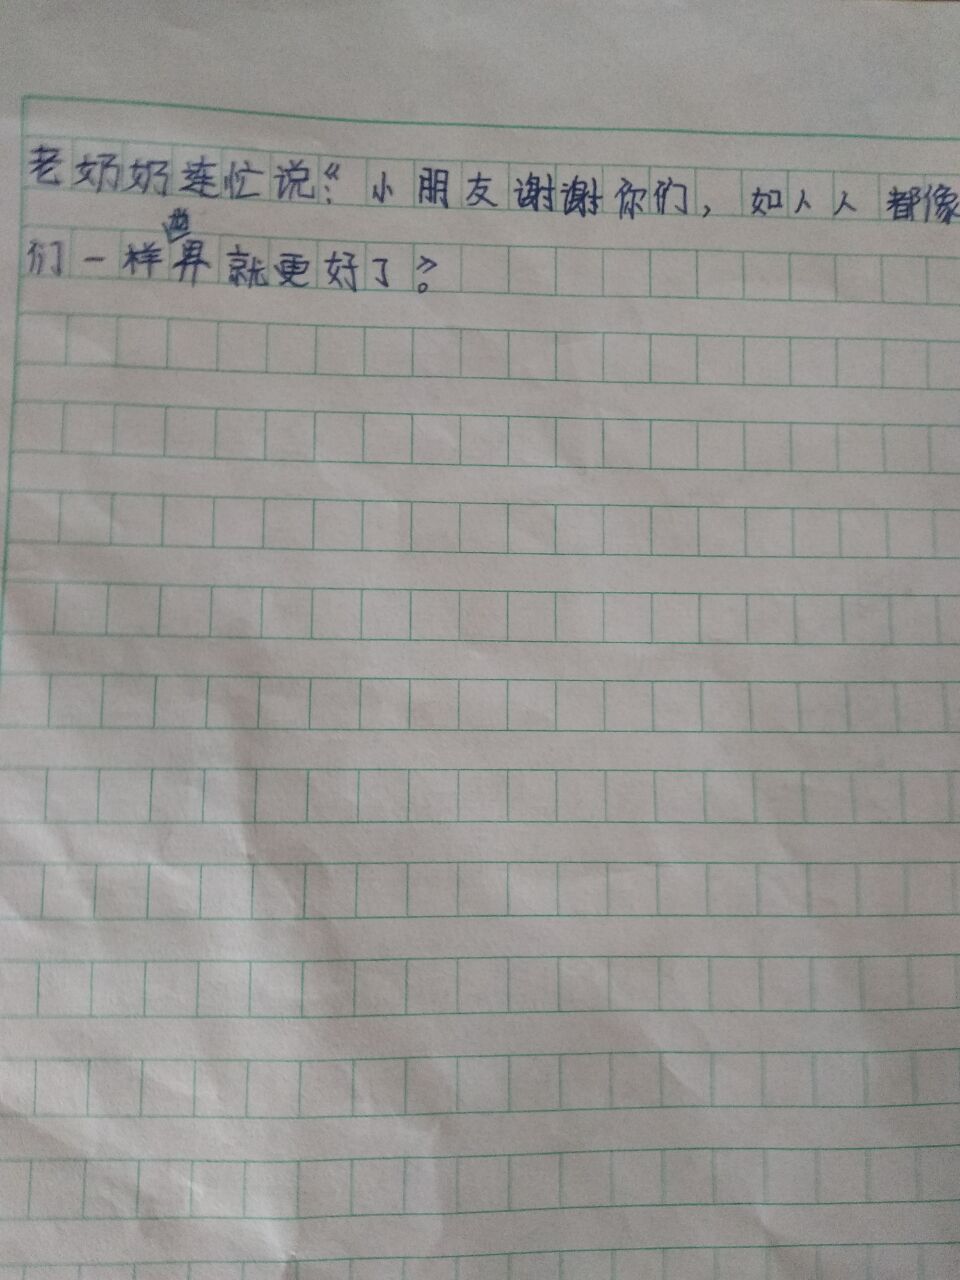 老奶奶连忙说：“小朋友谢谢你们，如人人都像
们一样世界就更好了。”